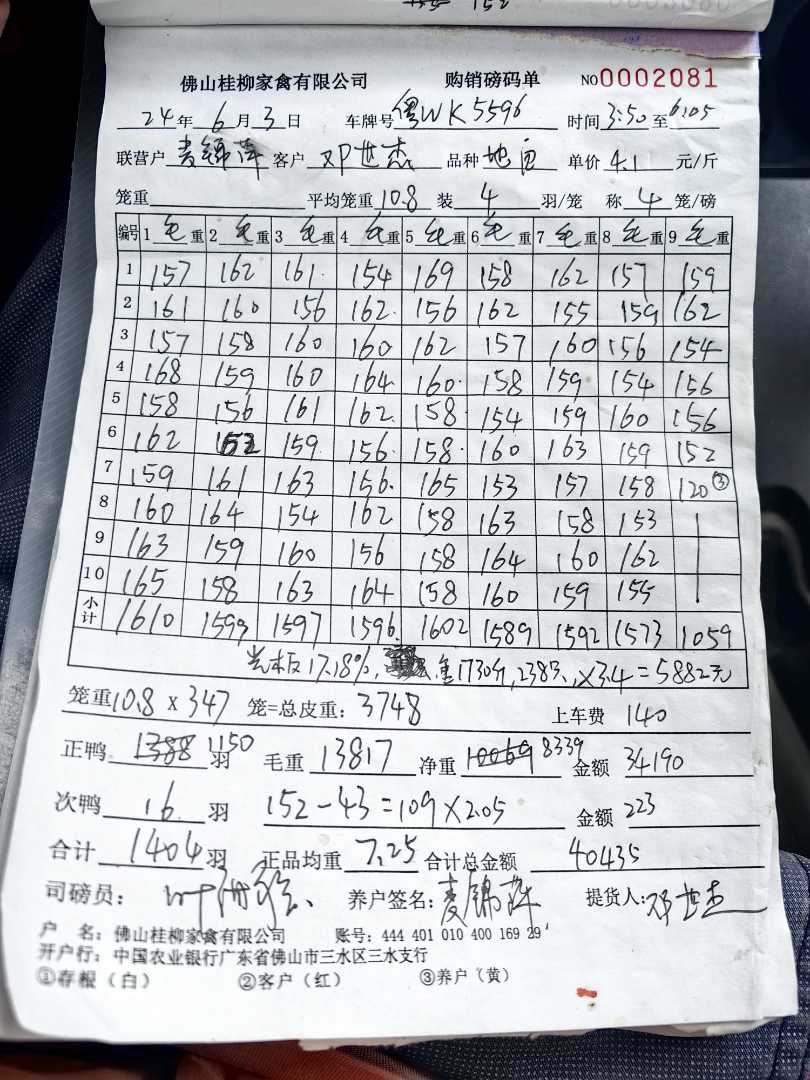 152
佛山桂柳家禽有限公司 购销磅码单 NO0002081
24年6月3日 车牌号粤WK5596 时间3:50至6:05
联营户麦锦萍客户邓世杰 品种 单价4.1元/斤
笼重 平均笼重10.8装4羽/笼 称4笼/磅
编号 1毛重 2毛重 3毛重 4毛重 5毛重 6毛重 7毛重 8毛重 9毛重
1 157 162 161 154 169 158 162 157 159
2 161 160 156 162 156 162 155 159 162
3 157 158 160 160 162 157 160 156 154
4 168 159 160 164 160 158 159 154 156
5 158 156 161 162 158 154 159 160 156
6 162 152 159 156 158 160 163 159 152
7 159 161 163 156 165 153 157 158 120③
8 160 164 154 162 158 163 158 153
9 163 159 160 156 158 164 160 162
10 165 158 163 164 158 160 159 155
小计 1610 1599 1597 1596 1602 1589 1592 1573 1059
17.18%, 1730斤,238只,×3.4=5882元
笼重10.8×347笼=总皮重:3748 上车费140
正鸭1388 1150羽 毛重13817净重10069 8339金额34190
次鸭16羽 152-43=109×2.05 金额223
合计1404羽 正品均重7.25合计总金额40435
司磅员: 养户签名:麦锦萍 提货人:邓世杰
户 名:佛山桂柳家禽有限公司 账号:444 401 010 400 169 29
开户行:中国农业银行广东省佛山市三水区三水支行
①存根(白) ②客户(红) ③养户(黄)